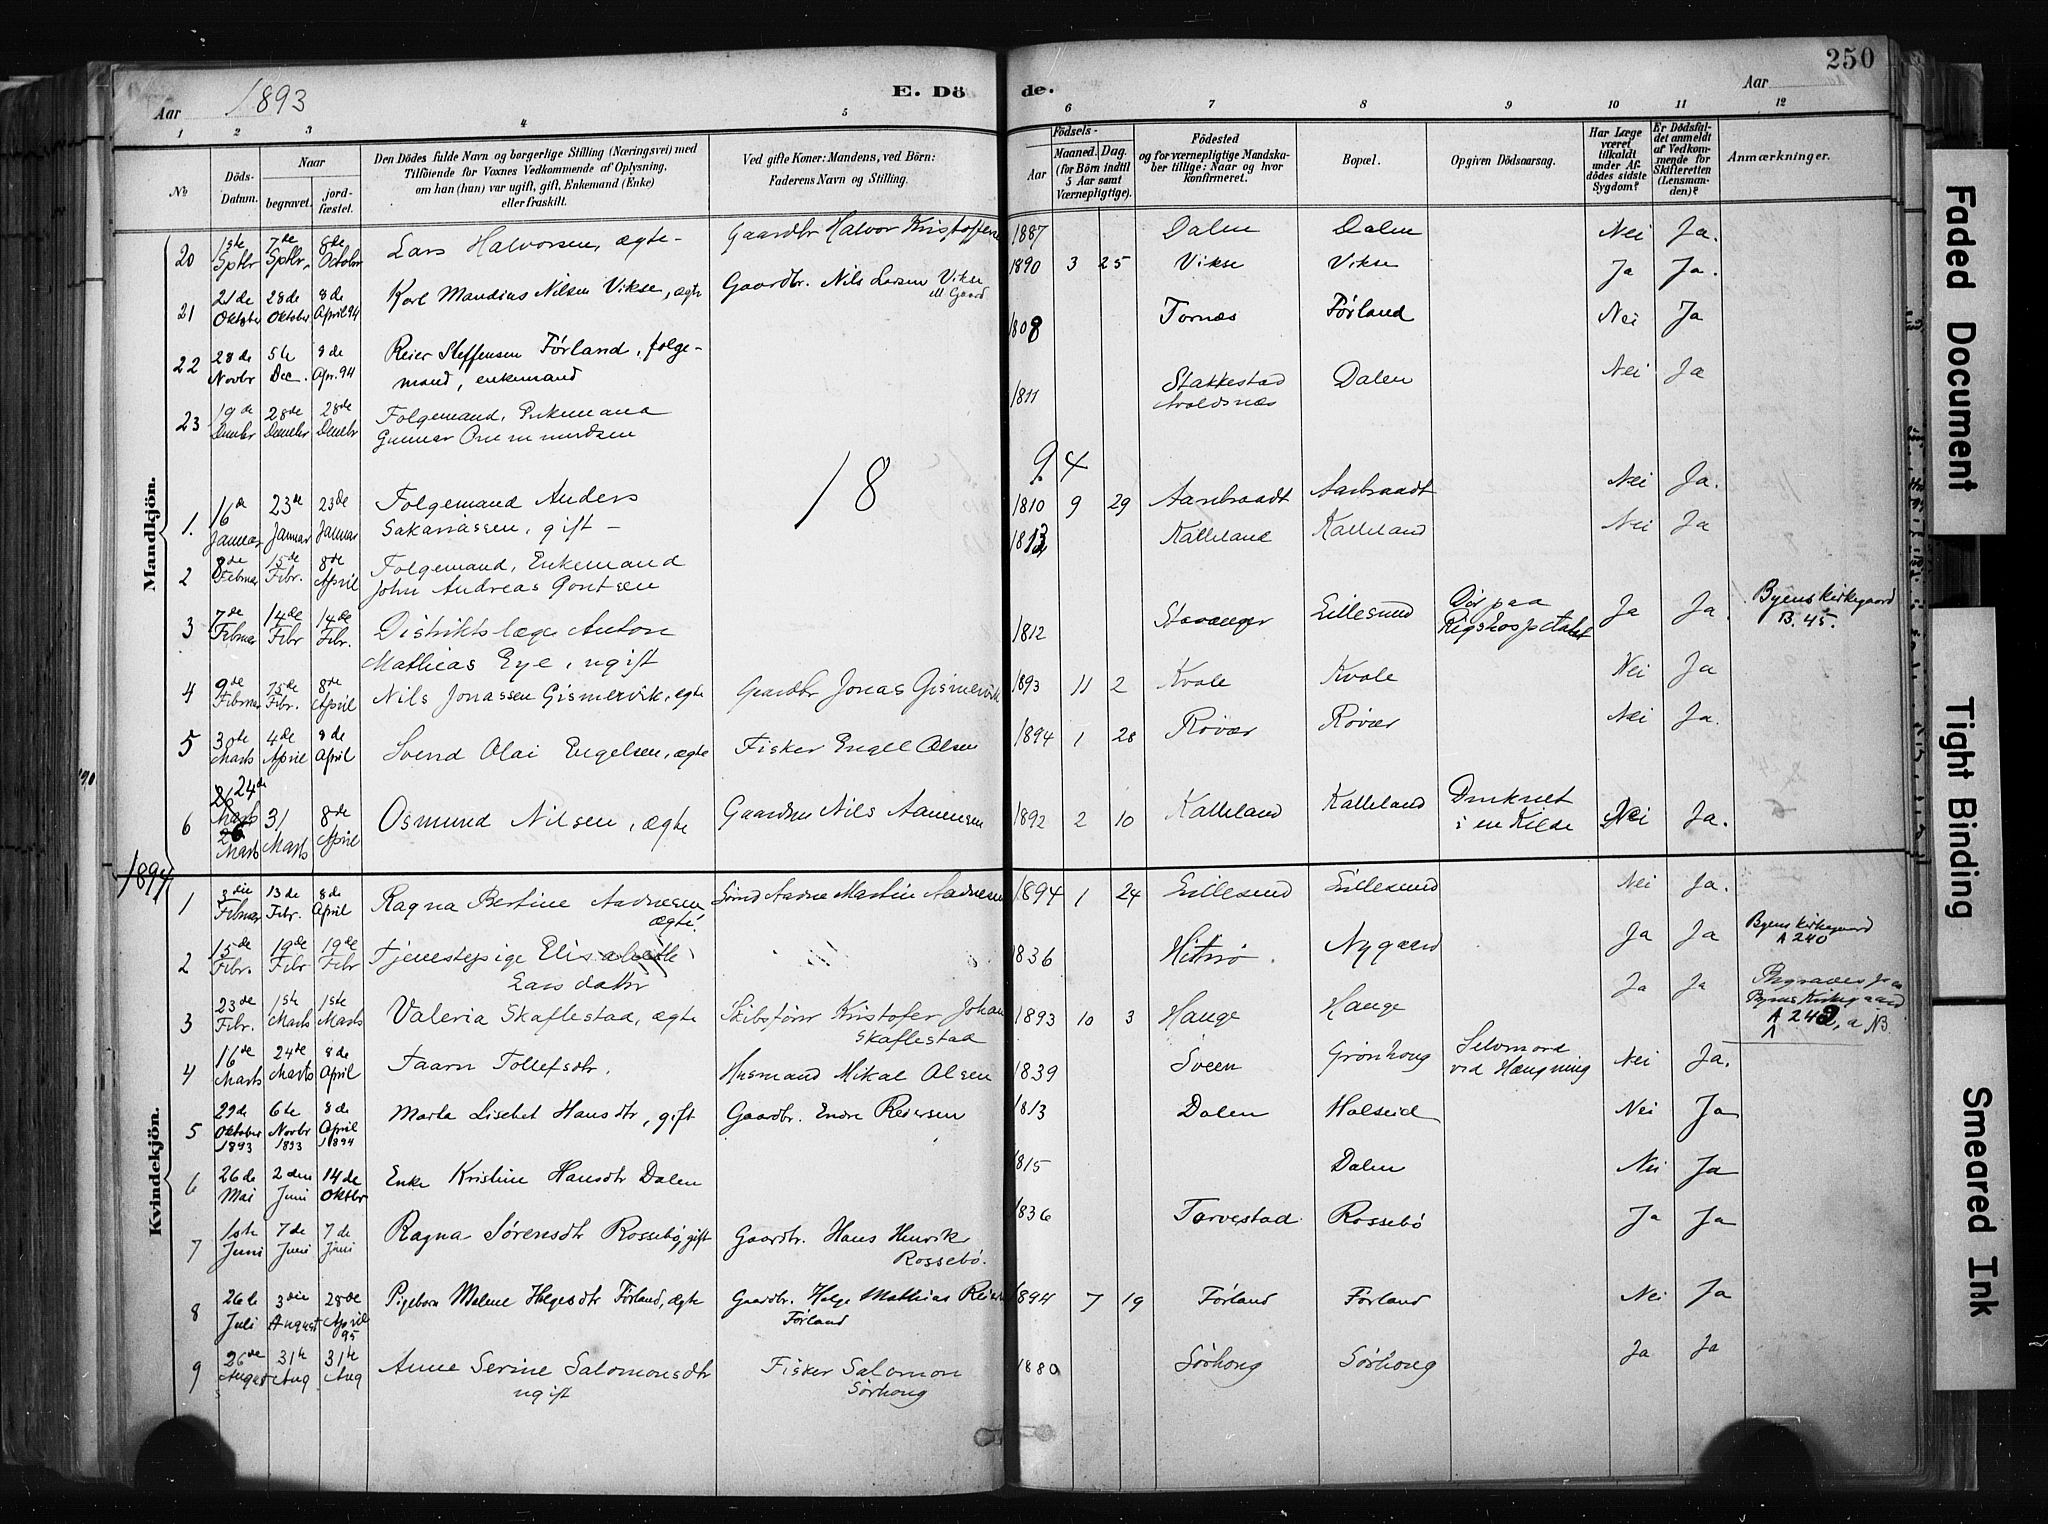 250
Aar 1893
E. Dö
de.
Aar
1 2 3 4 5 6 7 8 9 10 11 12
No
Döds-
Datum.
Naar
begravet.
jord-
fæstet.
Den Dödes fulde Navn og borgerlige Stilling (Næringsvei) med
Tilföiende for Voxnes Vedkommende af Oplysning,
om han (hun) var ugift, gift, Enkemand (Enke)
eller fraskilt.
Ved gifte Koner: Mandens, ved Börn:
Faderens Navn og Stilling.
Födsels-
Aar
Maaned. Dag.
(for Börn indtil
5 Aar samt
Værnepligtige).
Födested
og for værnepligtige Mandska-
ber tillige: Naar og hvor
konfirmeret.
Bopæl.
Opgiven Dödsaarsag.
Har Læge
været
tilkaldt
under Af-
dödes sidste
Sygdom?
Er Dödsfal-
det anmeldt
af Vedkom-
mende for
Skifteretten
(Lensman-
den)?
Anmærkninger.
Mandkjön.
20 1ste Sptbr 7de Sptbr. 8de Octobr Lars Halvorsen, ægte- Gaardbr Halvor Kristoffersen 1887 Dalen Dalen Nei Ja.
21 21de Oktober 28de Oktober 8de April 94 Karl Mandius Nilsen Vikse, ægte Gaardbr. Nils Larsen Vikse 1890 3 25 Vikse Vikse Ja Ja.
22 28de Novbr 5te Dec. 8de Apr. 94 Reier Steffensen Førland, folge-
mand, enkemand 1808 Tornæs Førland Nei Ja
23 19de 28de 28de Folgemand, Enkemand
Gunnar 1811 Stakkestad
Avaldsnæs Dalen Nei Ja
18
94
1. 16de Januar 23de Januar 23de Januar Folgemand Anders
Sakariassen, gift - 1810 9 29 Nei Ja.
2 8de Februar 15de Febr. 8de April Folgemand, Enkemand
John Andreas 1813 Kalleland Kalleland Nei Ja
3 7de Februar 14de Febr 14de Febr. Distriktslæge Anton
Mathias Eye, ugift 1812 Stavanger Lillesund Dør paa
Rigshospitalet Ja Ja. Byens Kirkegaard
B. 45.
4 9de Februar 15de Febr. 8de April Nils Jonassen Gismervik, ægte Gaardbr Jonas Gismervik 1893 11 2 Kvale Kvale Nei Ja
5 30te Marts 4de April 8de April Svend Olai Engelsen, ægte Fisker Engel Olsen 1894 1 28 Røvær Røvær Nei Ja.
6 24de Marts 26 Marts 31 Marts 8de April Osmund Nilsen, ægte Gaardbr Nils Aanensen 1892 2 10 Kalleland Kalleland Druknet
i en Kilde Nei Ja.
1894
Kvindekjön.
1 3die Februar 13de Febr. 8de April Ragna Bertine Aadnesen
ægte. Aadne Martin Aadnesen 1894 1 24 Lillesund Lillesund Nei Ja.
2 15de Febr. 19de Febr 19de Febr Tjenestepige Elisabeth
Larsdatter 1836 Hitterø. Nygaard Ja Ja Byens Kirkegaard
A 240
3 23de Febr. 1ste Marts 1ste Marts Valeria Skaflestad, ægte Skibsfører Kristofer Johan
Skaflestad 1893 10 3 Hauge Hauge Ja Ja Begravet paa
Byens Kirkegaard
A 242, a NB
4 16de Marts 24de Marts 8de April Taarn Tollefsdtr. Husmand Mikal Olsen 1839 Sveen Grønhoug Selvmord
ved Hængning Nei Ja.
5 29de Oktober 1893 6te Novbr 1893 8de April 1894 Marta Lisebet Hansdtr, gift Gaardbr. Endre Reiersen 1813 Dalen Halseid Nei Ja
6 26de Mai 2den Juni 14de Oktbr Enke Kristine Hansdtr Dalen 1815 Dalen Nei Ja
7 1ste Juni 7de Juni 7de Juni Ragna Sørensdtr Rossebø, gift Gaardbr. Hans Henrik
Rossebø. 1836 Torvestad Rossebø Ja Ja
8 26de Juli 3die August 28de April 95 Pigebarn Malene Helgesdtr Førland, ægte Gaardbr. Helge Mathias Reiersen
Førland 1894 7 19 Førland Førland Nei Ja
9 26de August 31te Aug 31te Aug Anne Serine Salomonsdtr
ugift Fisker Salomon
Sørhoug 1880 Sørhoug Sørhoug Ja Ja
Faded Document
Tight Binding
Smeared Ink